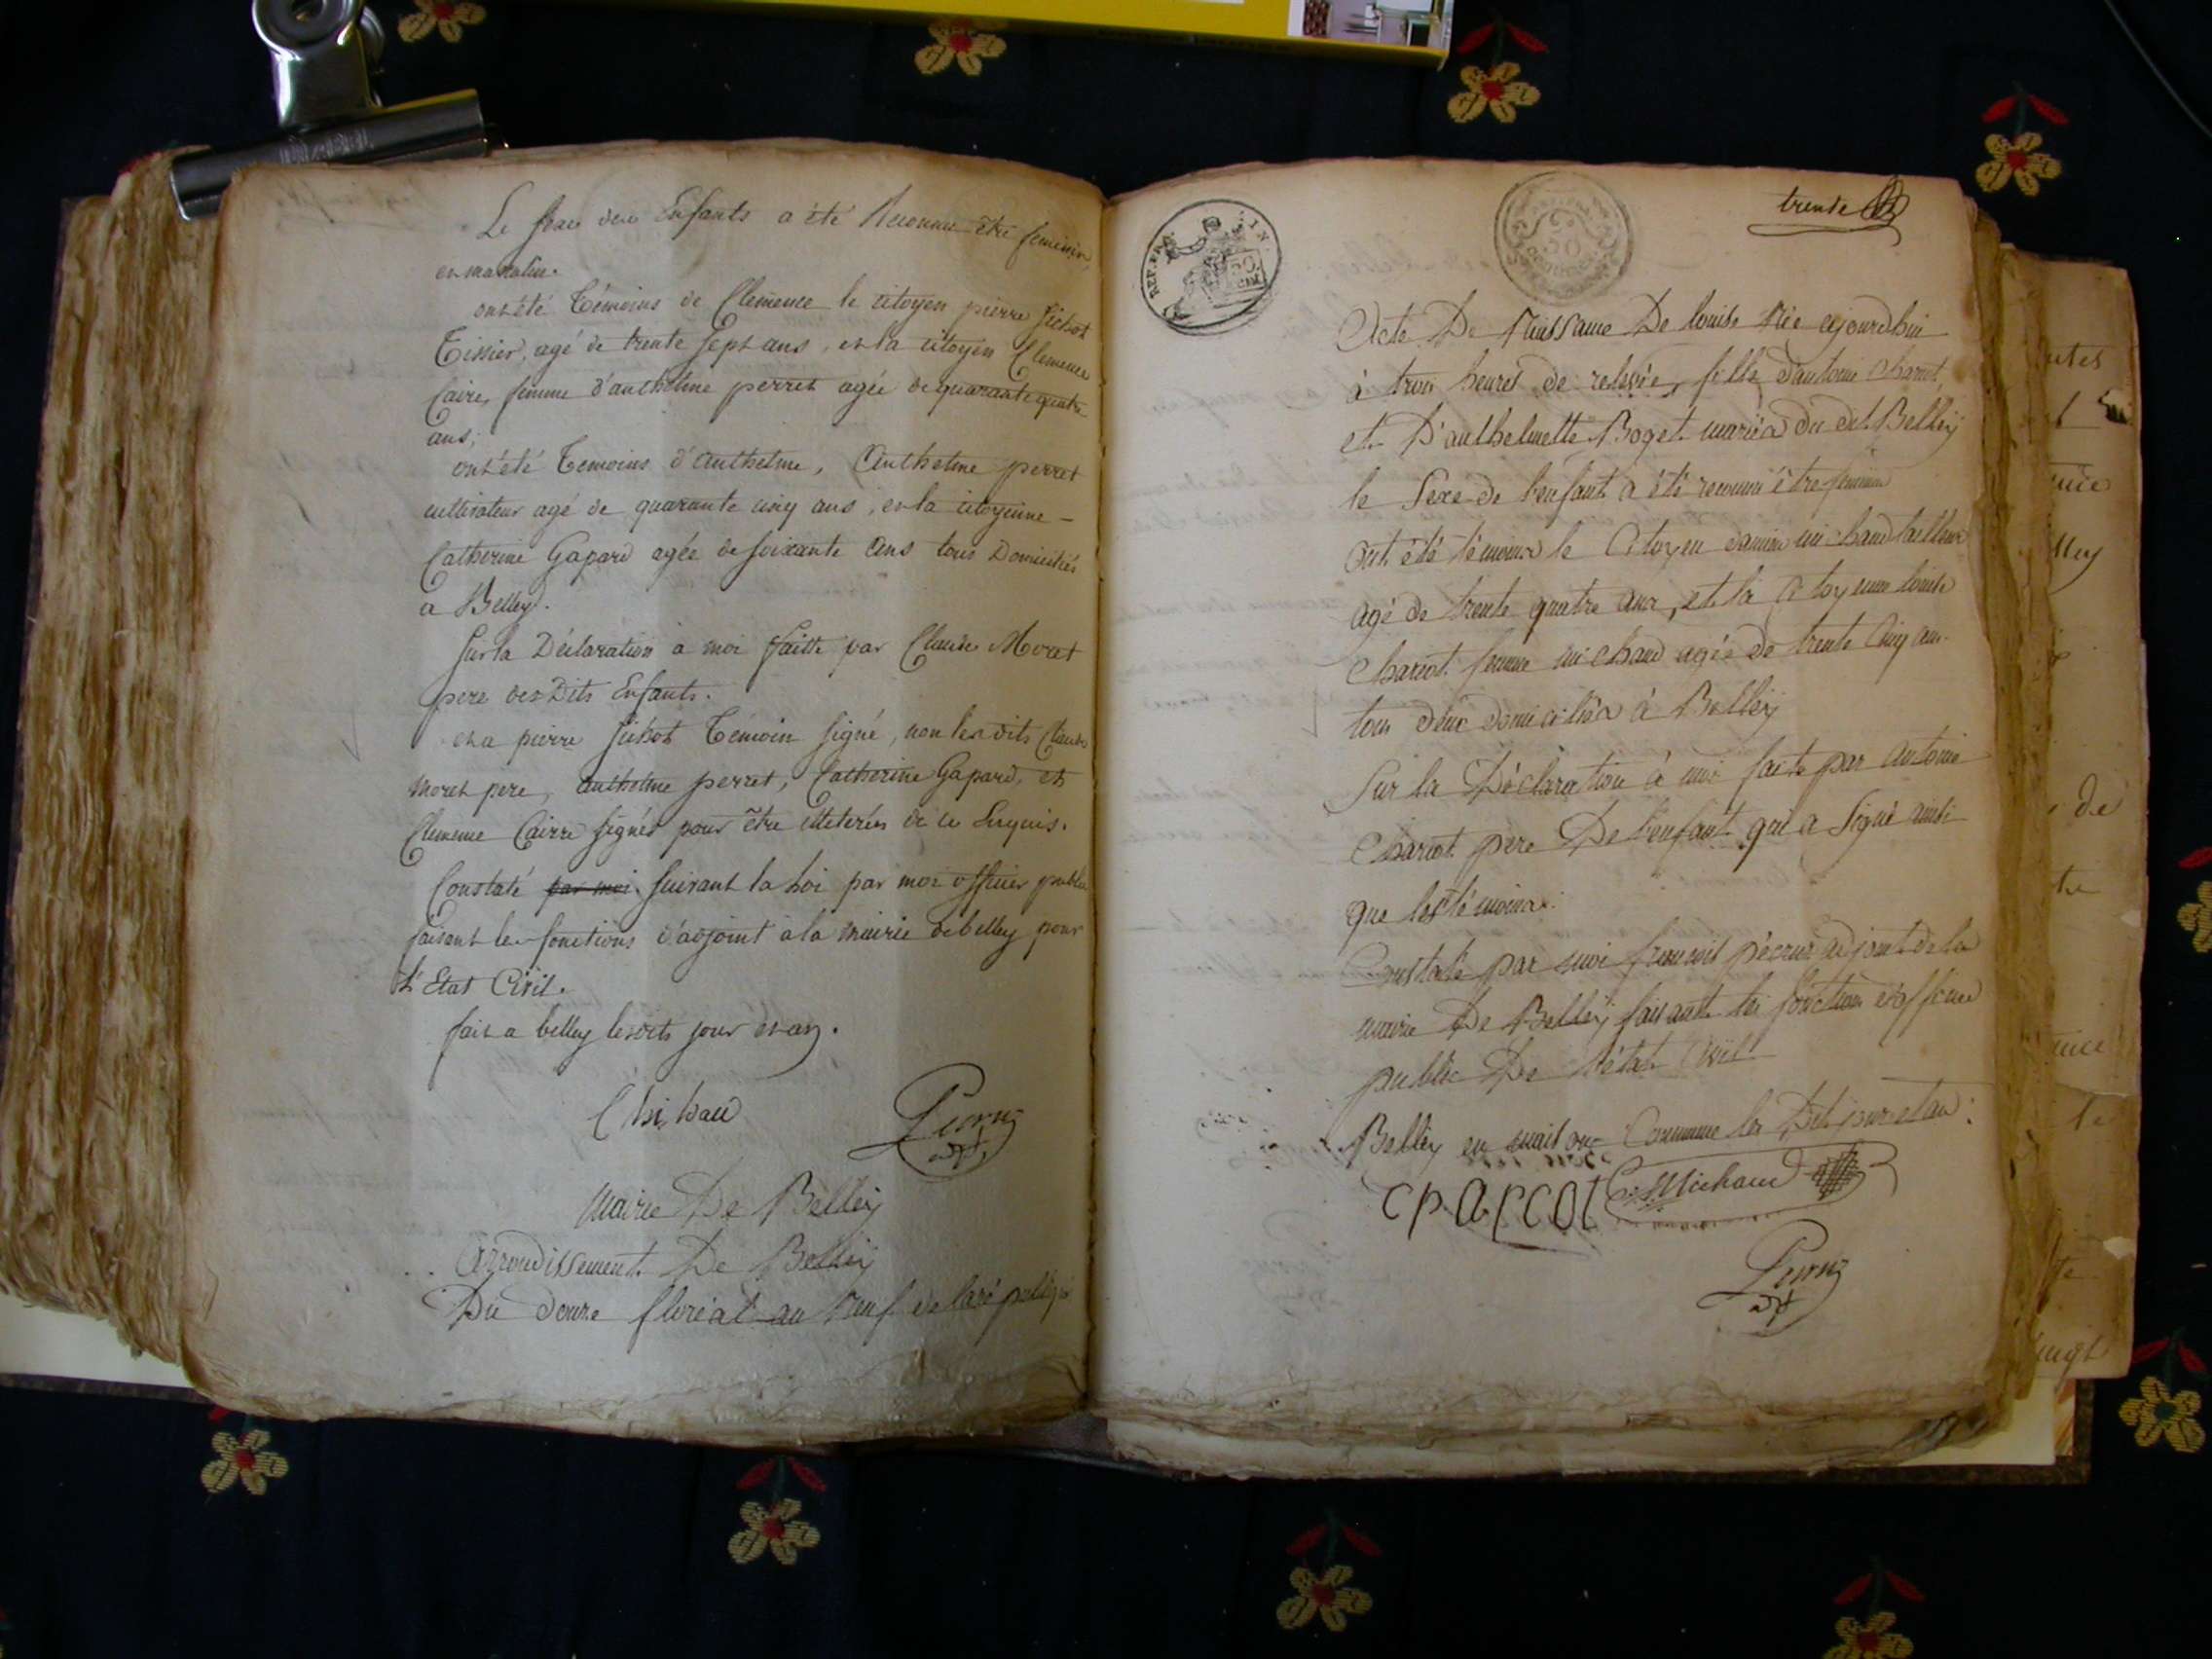 Le sexe des Enfants a été Reconnu être feminin,
et masculin.
ont été Témoins de Clemence le citoyen pierre
Tissier, agé de trente sept ans, et la citoyen Clemence
Caire, femme d'anthelme perret agée de quarante quatre
ans;
ont été Temoins d'Anthelme, Anthelme perret
cultivateur agé de quarante cinq ans, et la citoyenne -
Catherine Gapard agée de soixante ans tous Domiciliés
a Belley.
Sur la Déclaration a moi faitte par Claude Moret
pere des Dits Enfants.
et a pierre Témoin signé, non les dits Claude
Moret pere, anthelme perret, Catherine Gapard, et
Clemence Cairre signés pour être illeterés de ce Enquis.
Constaté par moi suivant la Loi par moi officier public
faisant les fonctions d'adjoint a la mairie de belley pour
L'Etat Civil.
fait a belley les dits jour et an.
Mairie De Belley
Arrondissement De Belley
Du douze floréal an neuf de la républiq
trente
REP. FRA.
50
50
Acte De Naissance De louise Née ajourdhui
à trois heures de relevée, fille d'antoine Charcot
et D'anthelmette Boget mariés du dit Belley
le Sexe de l'enfant a été reconnu être féminin
ont été témoins le Citoyen michaud tailleur
agé de trente quatre ans, et la Citoyenne louise
Charcot femme michaud agée de trente cinq ans
tous deux domiciliés à Belley
Sur la Déclaration à moi faite par antoine
Charcot pere De l'enfant qui a Signé ainsi
que les témoins:
Constaté par moi françois adjoint de la
mairie De Belley faisant les fonctions d'officier
public De l'état Civil
Belley en maison Commune les Dits jour et an:
CPARCOT Michaud